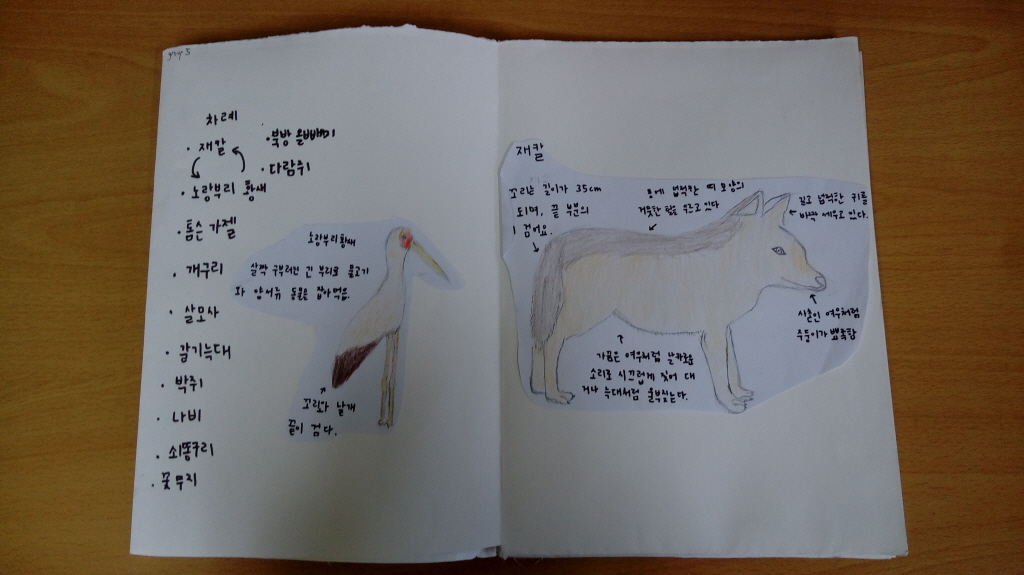 차례
· 재칼
· 노랑부리 황새
· 톰슨 가젤
· 개구리
· 살모사
· 갈기늑대
· 박쥐
· 나비
· 쇠똥구리
· 꽃무지
· 북방 올빼미
· 다람쥐
노랑부리황새
살짝 구부러진 긴 부리로 물고기
와 양서류 동물은 잡아먹음.
꼬리와 날개
끝이 검다.
재칼
꼬리는 길이가 35cm
되며, 끝 부분의
검어요.
등에 넓적한 띠 모양의
거뭇한 털을 두르고 있다
길고 넓적한 귀를
바짝 세우고 있다.
사촌인 여우처럼
주둥이가 뾰족함
가끔은 여우처럼 날카로운
소리로 시끄럽게 짖어 대
거나 늑대처럼 울부짖는다.